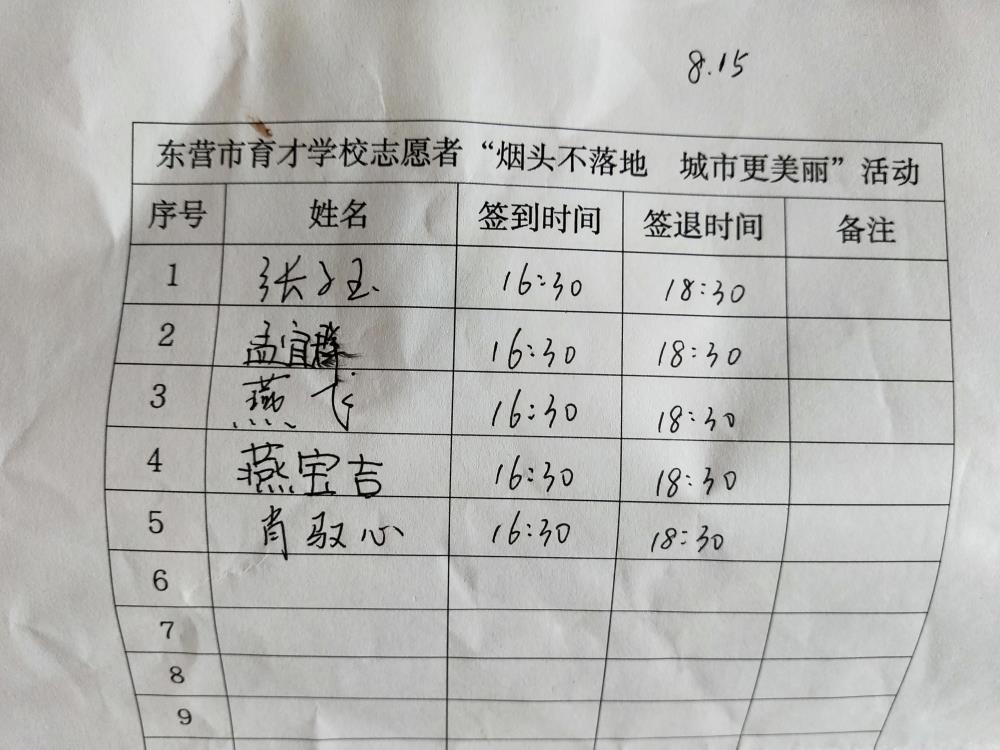 8.15
东营市育才学校志愿者“烟头不落地 城市更美丽”活动
序号 姓名 签到时间 签退时间 备注
1 张 16:30 18:30
2 孟宜 16:30 18:30
3 燕飞 16:30 18:30
4 燕宝吉 16:30 18:30
5 肖驭心 16:30 18:30
6
7
8
9